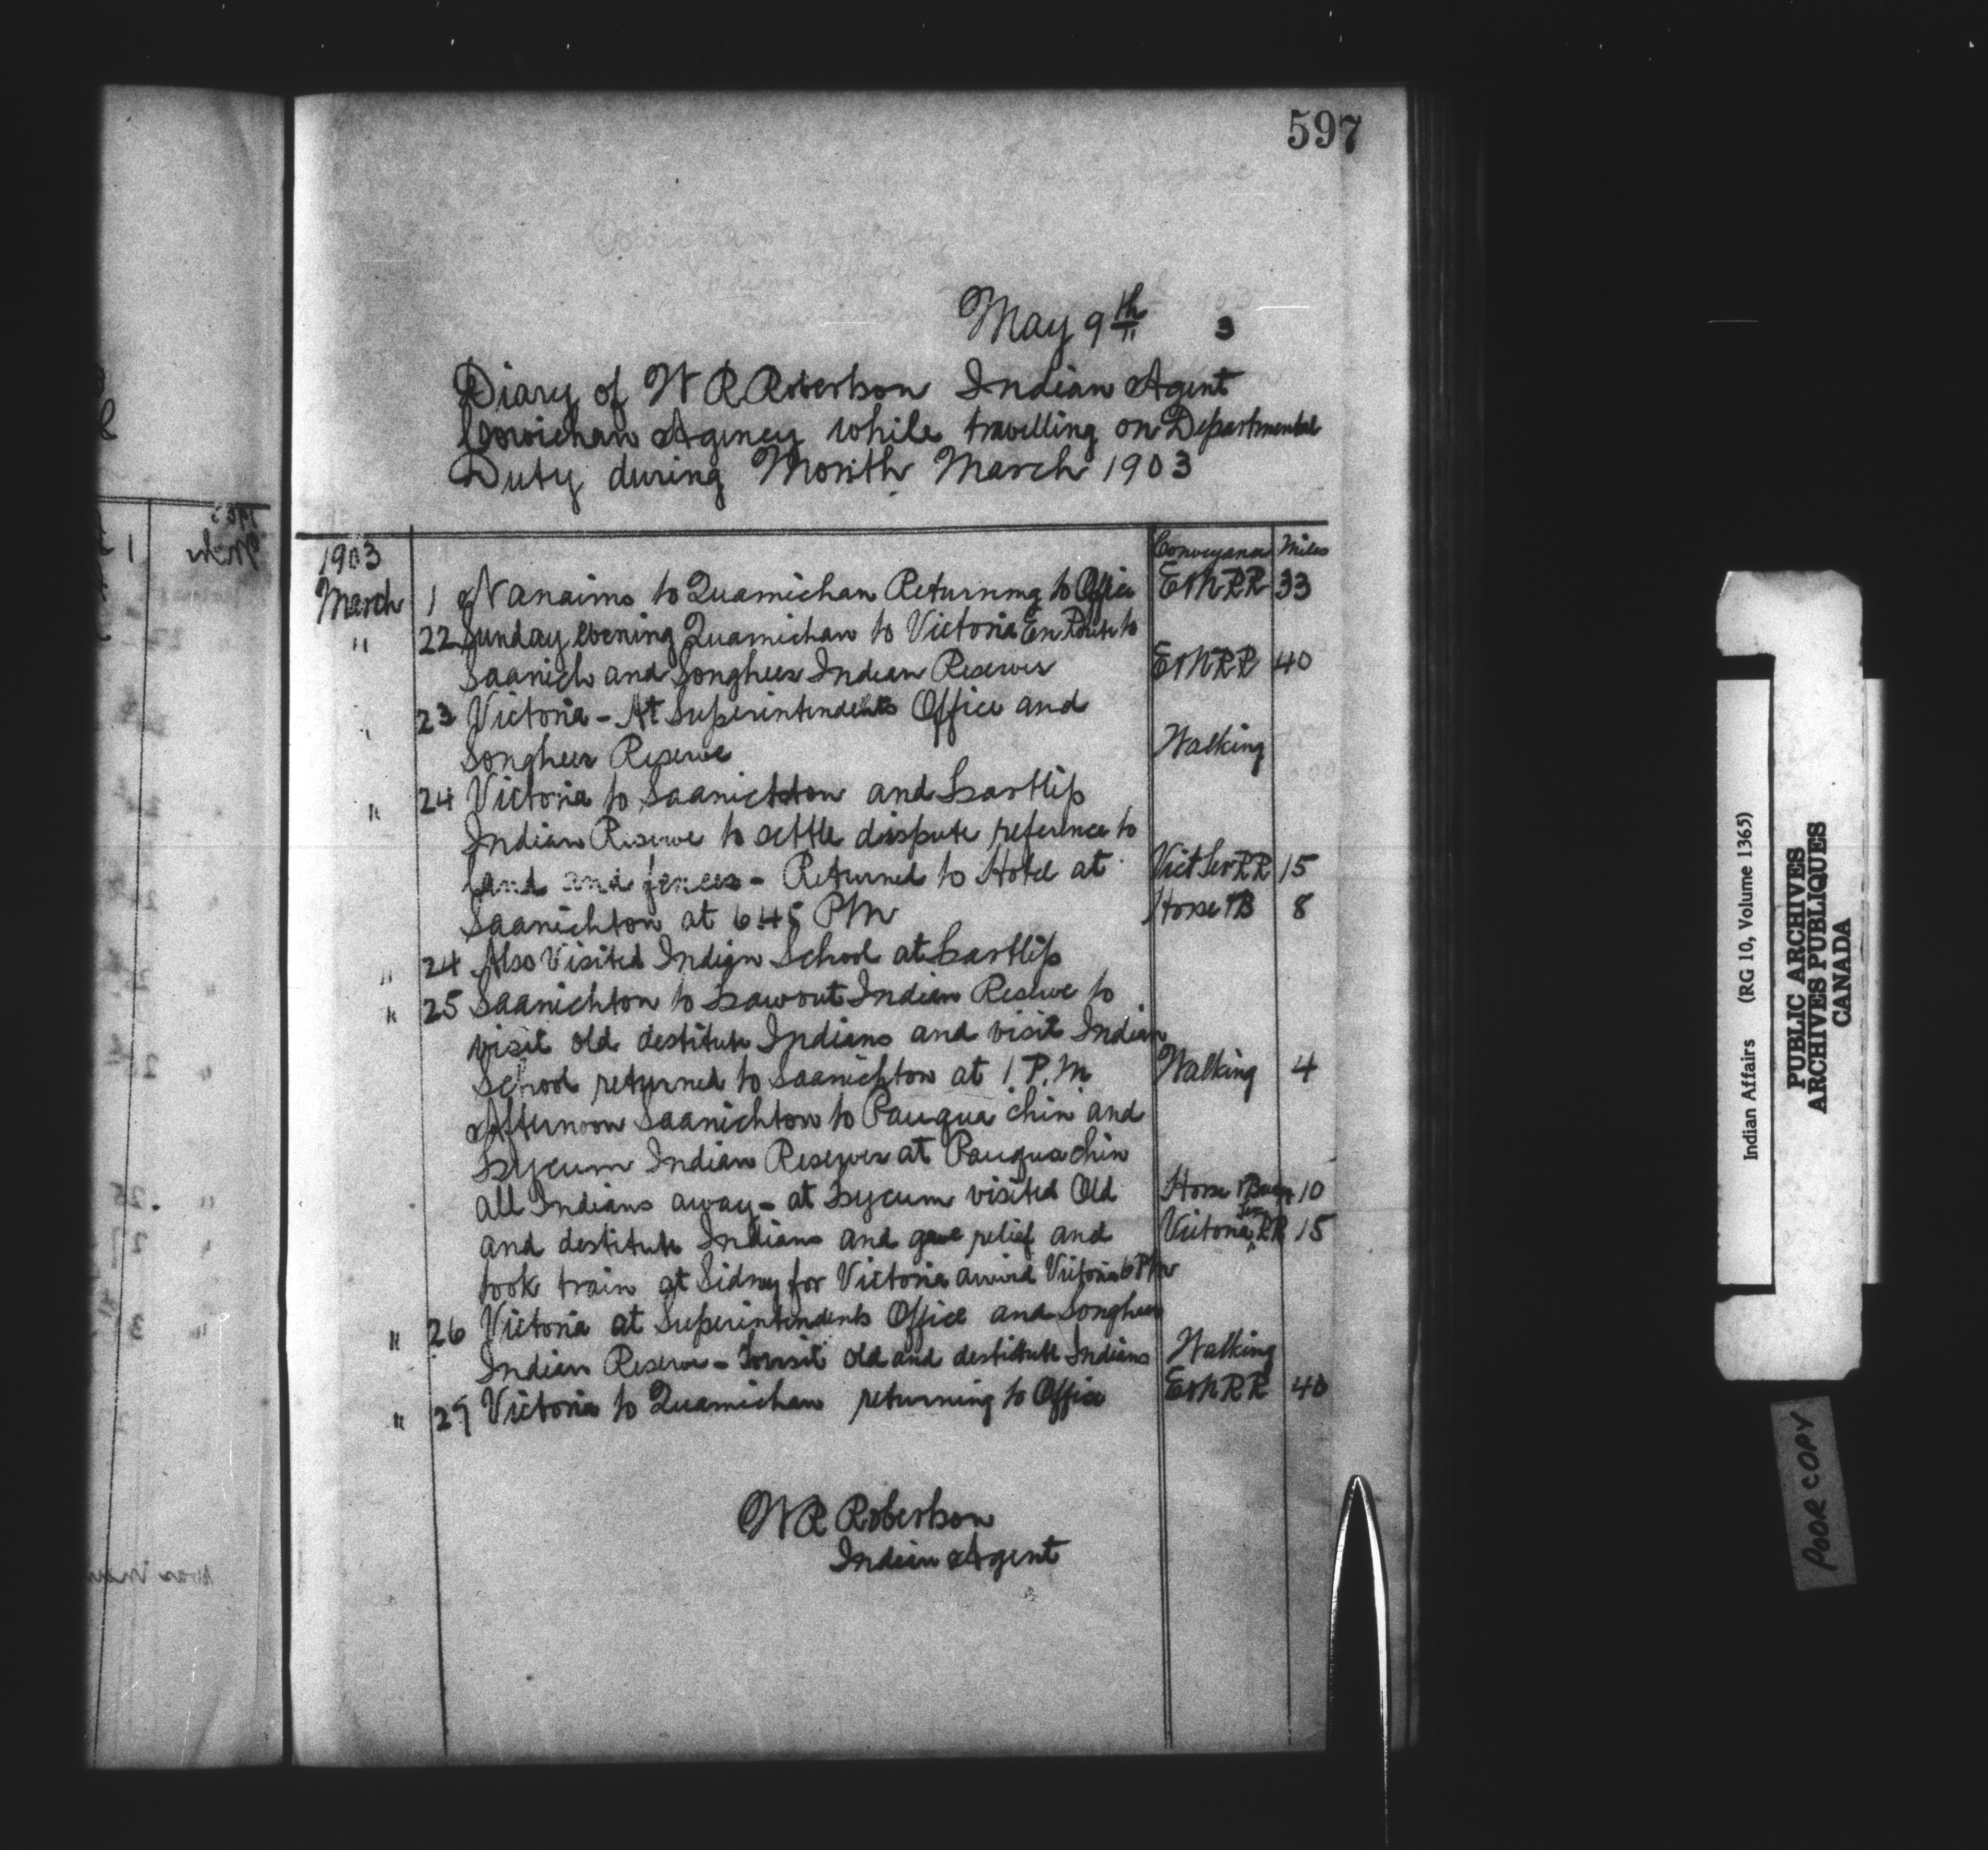 597
May 9th 3
Diary of W R Robertson Indian Agent
Cowichan Agency while travelling on Departmental
Duty during Month March 1903
1903 Conveyance Miles
March 1 Nanaimo to Quamichan Returning to Office E&NRR 33
" 22 Sunday evening Quamichan to Victoria En Route to
Saanich and Songhees Indian Reserves E&NRR 40
" 23 Victoria - At Superintendents Office and
Songhees Reserve Walking
" 24 Victoria to Saanichton and Tsartlip
Indian Reserve to settle dispute reference to
land and fences - Returned to Hotel at Vict Ser RR 15
Saanichton at 6.45 PM Horse & B 8
" 24 Also Visited Indian School at Tsartlip
" 25 Saanichton to Tsawout Indian Reserve to
visit old destitute Indians and visit Indian
School returned to Saanichton at 1. P.M. Walking 4
Afternoon Saanichton to Pauqua chin and
Tsycum Indian Reserves at Pauquachin
all Indians away - at Tsycum visited Old Horse & Buggy 10
and destitute Indians and gave relief and Victoria Ser RR 15
took train at Sidney for Victoria arrived Victoria 6 PM
" 26 Victoria at Superintendents Office and Songhees
Indian Reserve - To visit old and destitute Indians Walking
" 27 Victoria to Quamichan returning to Office E&NRR 40
W R Robertson
Indian Agent
Indian Affairs (RG 10, Volume 1365)
PUBLIC ARCHIVES
ARCHIVES PUBLIQUES
CANADA
POOR COPY